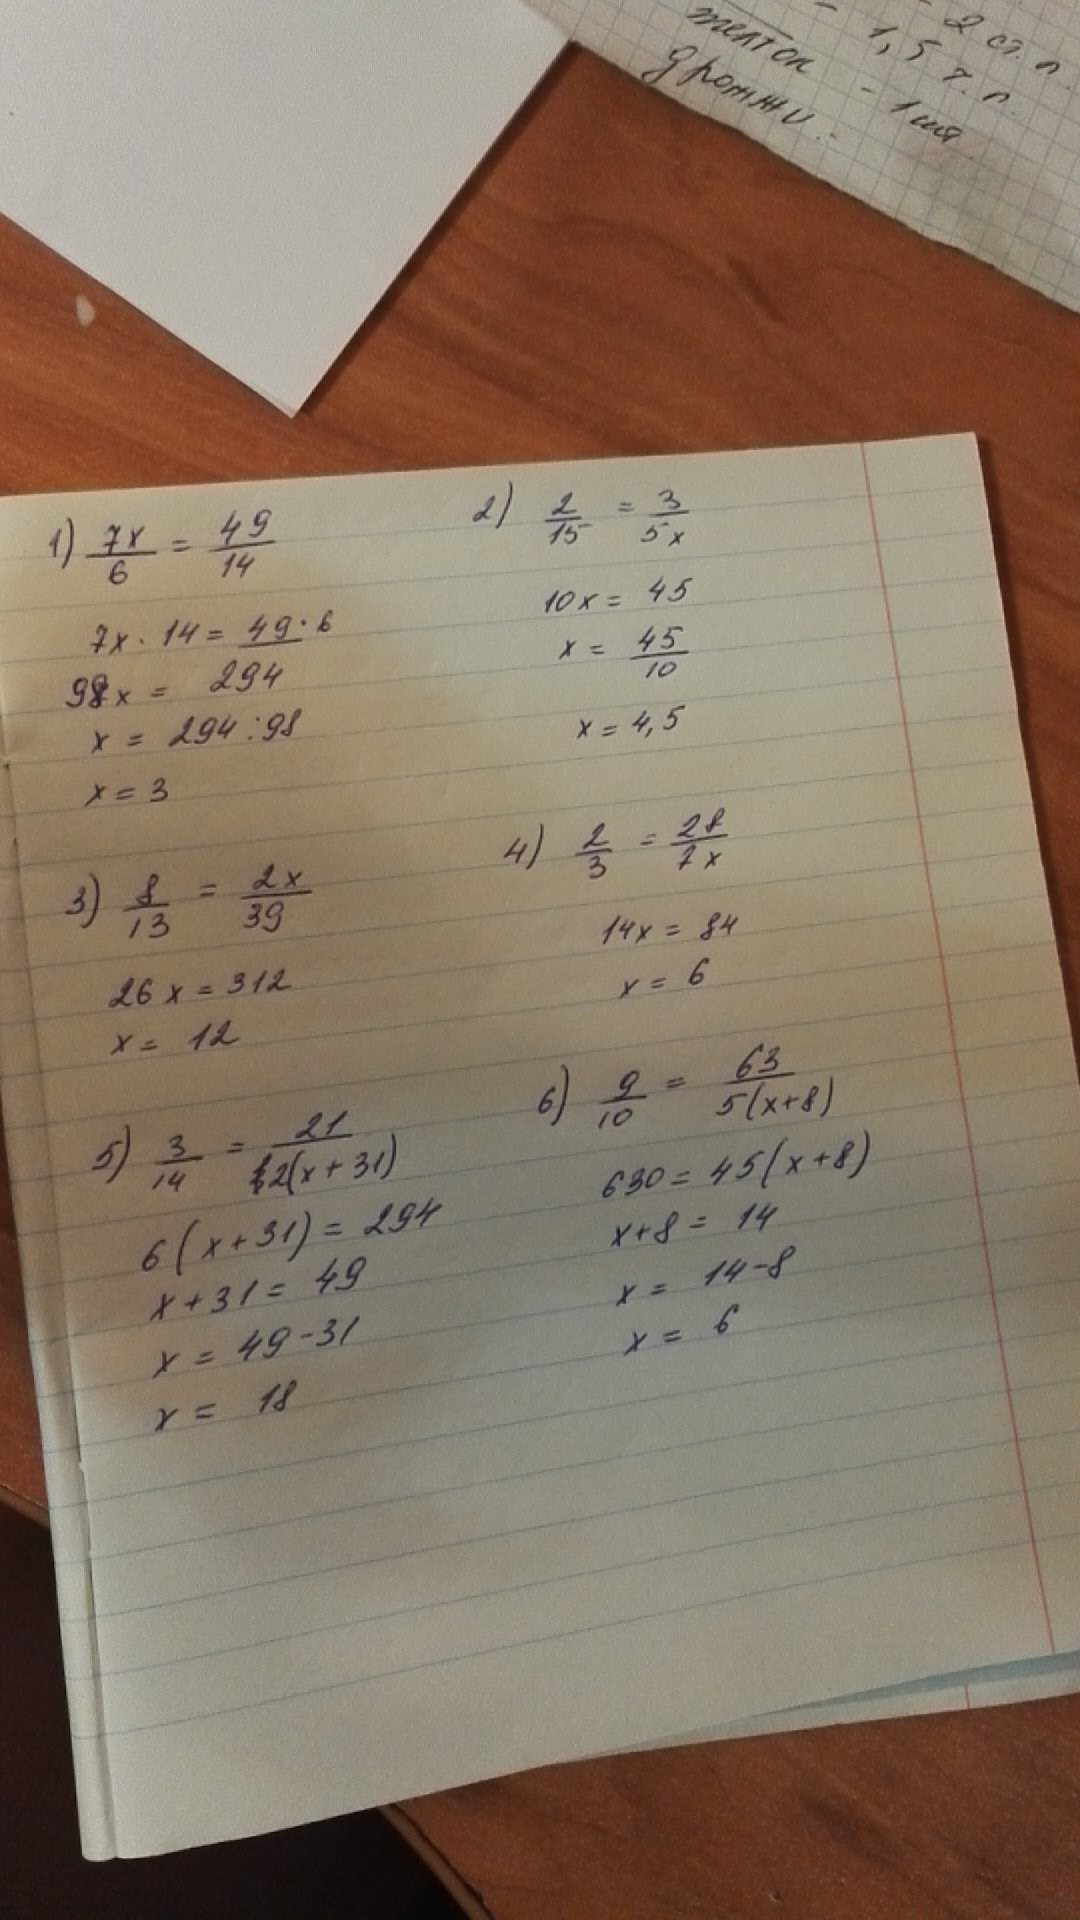 - 2 ст. л.
- 1,5 ч. л.
желток - 1 шт.
дрожжи:
1) 7x/6 = 49/14
7x · 14 = 49 · 6
98x = 294
x = 294 : 98
x = 3
2) 2/15 = 3/5x
10x = 45
x = 45/10
x = 4,5
3) 8/13 = 2x/39
26x = 312
x = 12
4) 2/3 = 28/7x
14x = 84
x = 6
5) 3/14 = 21/2(x+31)
6(x+31) = 294
x+31 = 49
x = 49-31
x = 18
6) 9/10 = 63/5(x+8)
630 = 45(x+8)
x+8 = 14
x = 14-8
x = 6